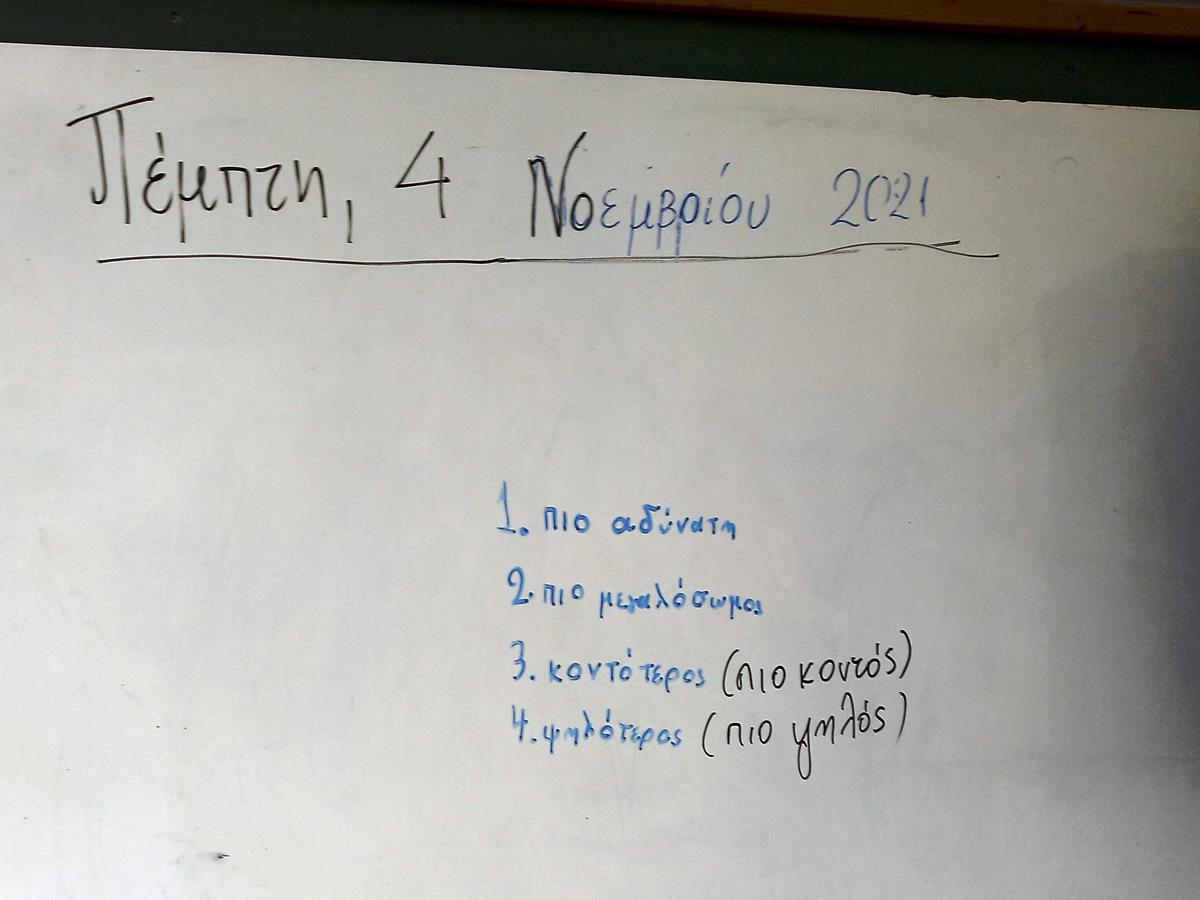 Πέμπτη, 4 Νοεμβρίου 2021
1. πιο αδύνατη
2. πιο μεγαλόσωμος
3. κοντότερος (πιο κοντός)
4. ψηλότερος (πιο ψηλός)